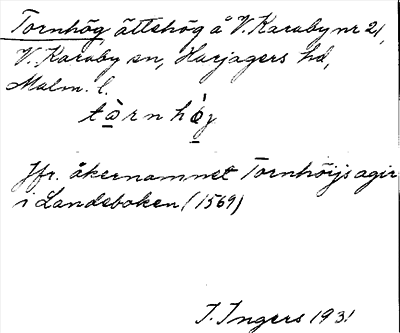 Tornhög ättehög å V. Karaby nr 21,
V. Karaby sn, Harjagers hd,
Malm. l.
tò̱rnhö̱̀j
Jfr. åkernamnet Tornhöijsagir
i Landeboken (1569)
I. Ingers 1931